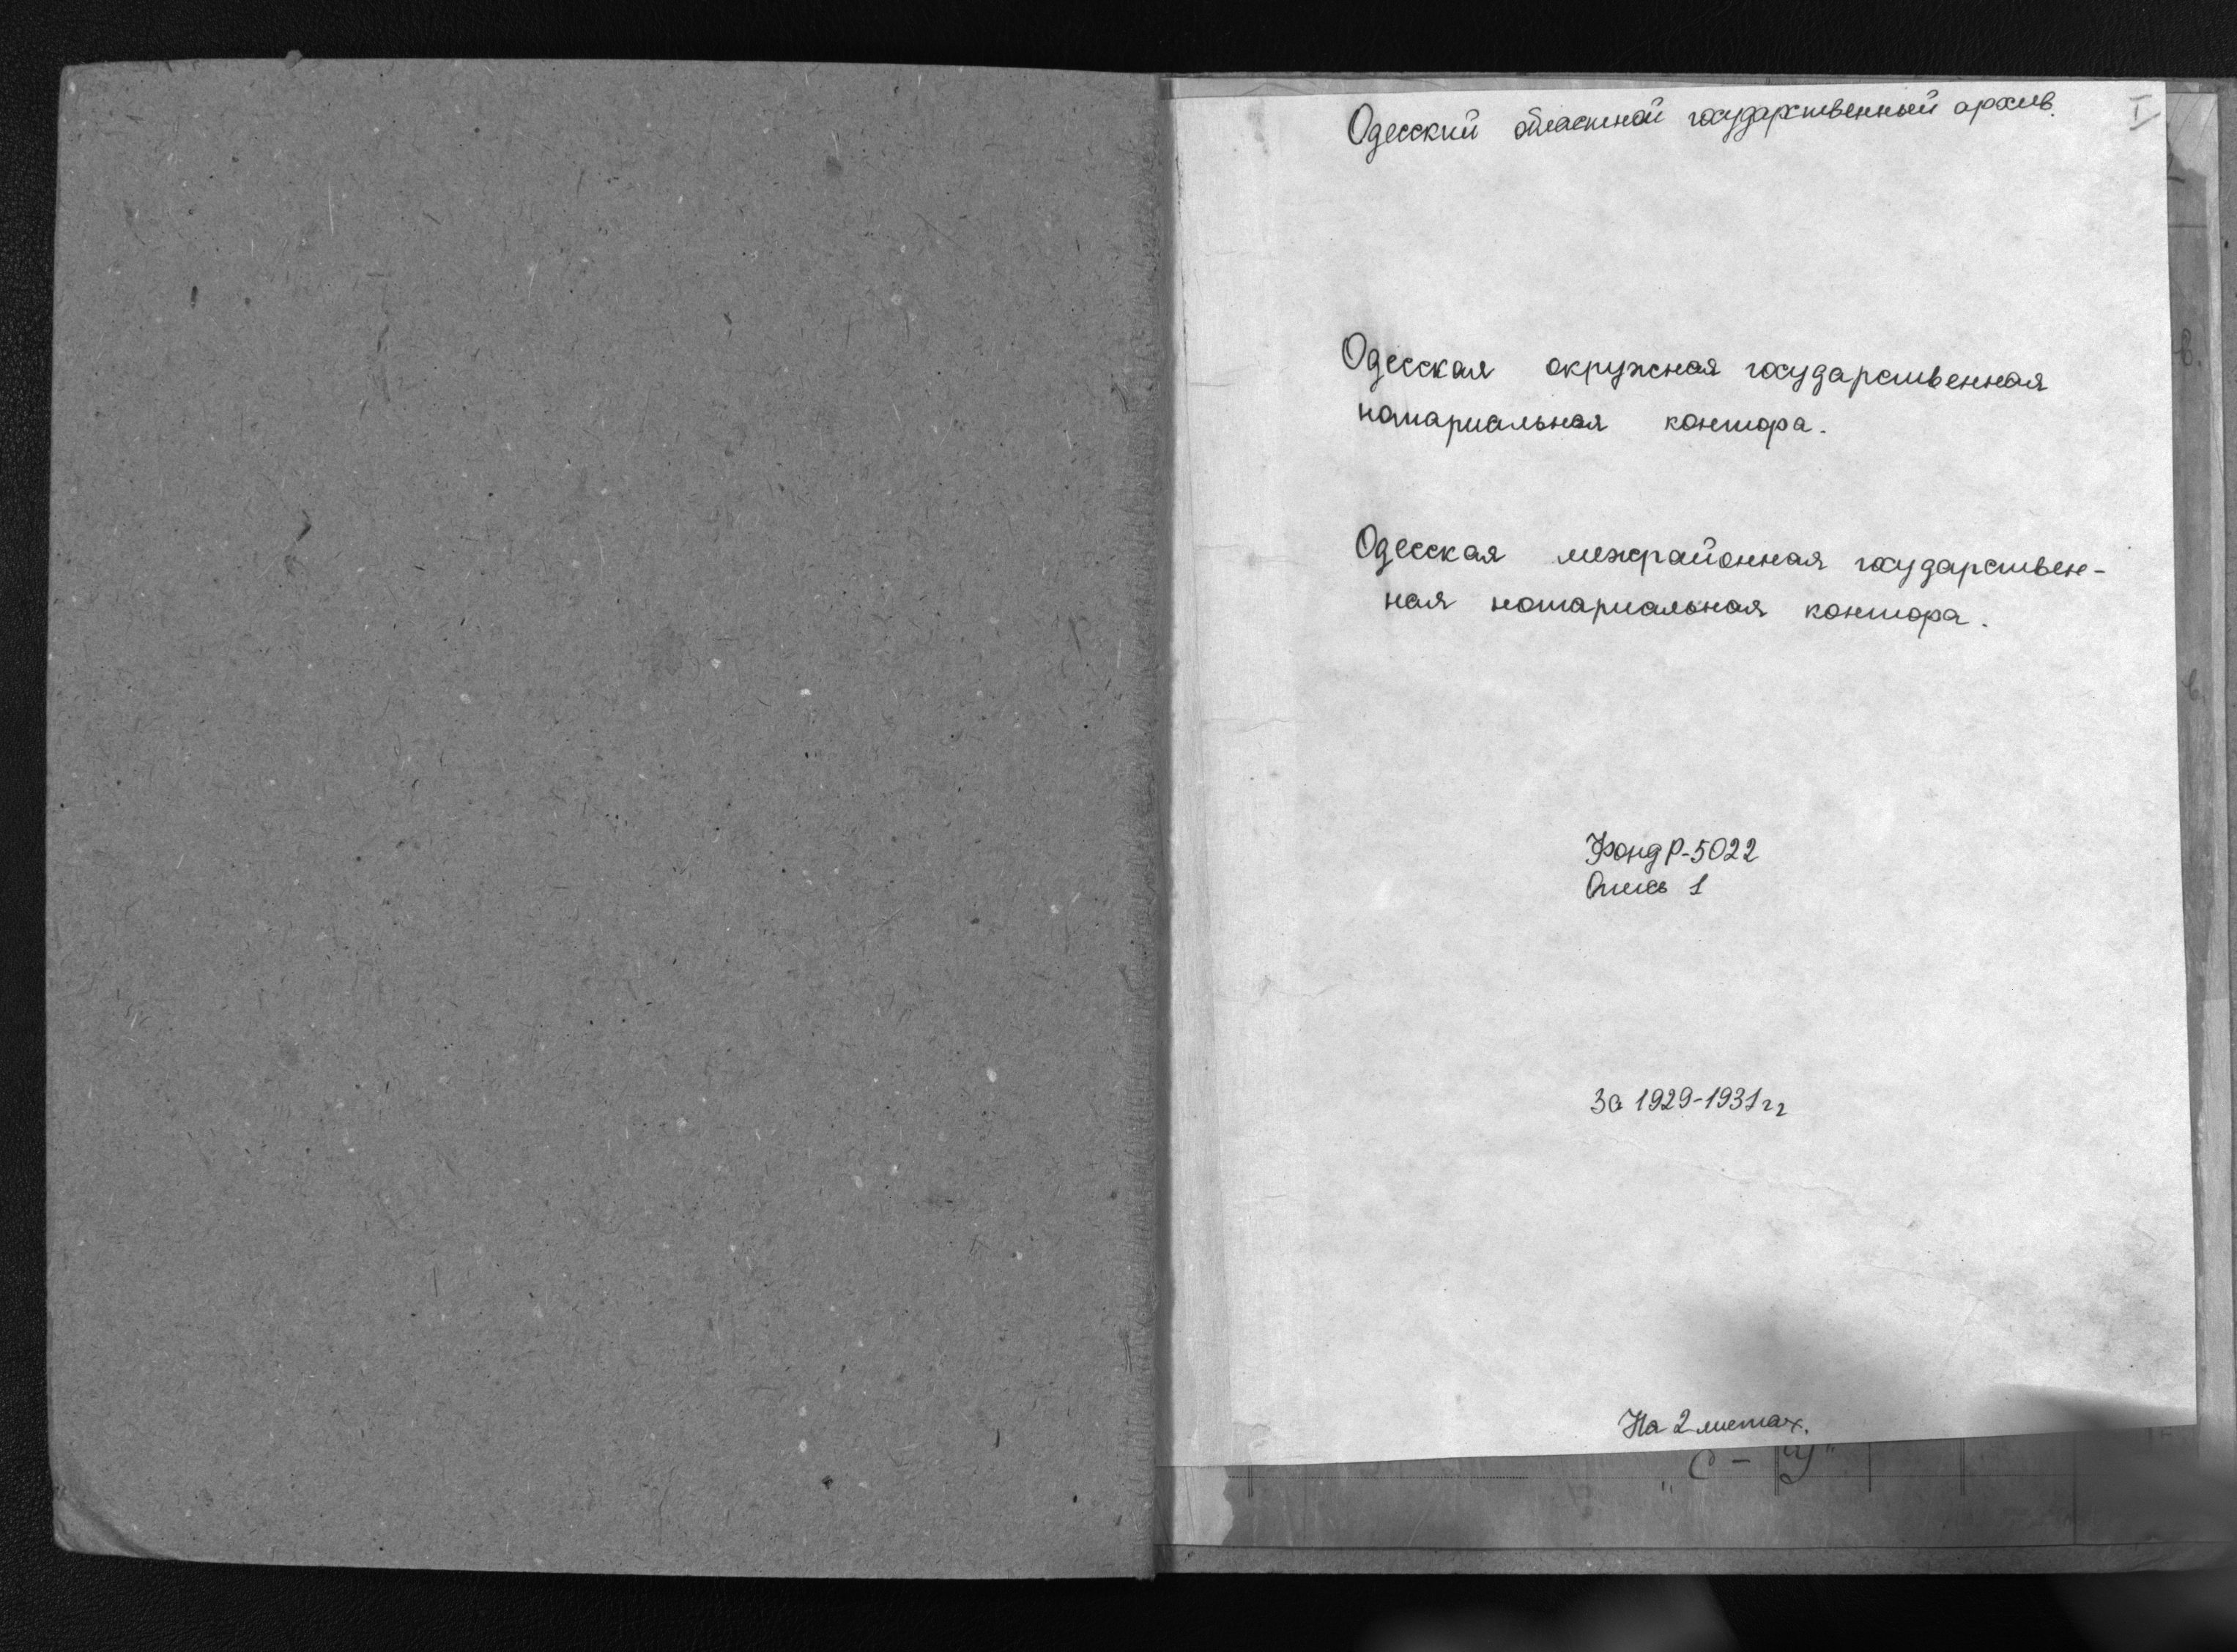 I
Одесский областной государственный архив.
Одесская окружная государственная
нотариальная контора.
Одесская межрайонная государствен-
ная нотариальная контора.
Фонд Р-5022
Опись 1
За 1929-1931 гг
На 2 листах.
„С - У"